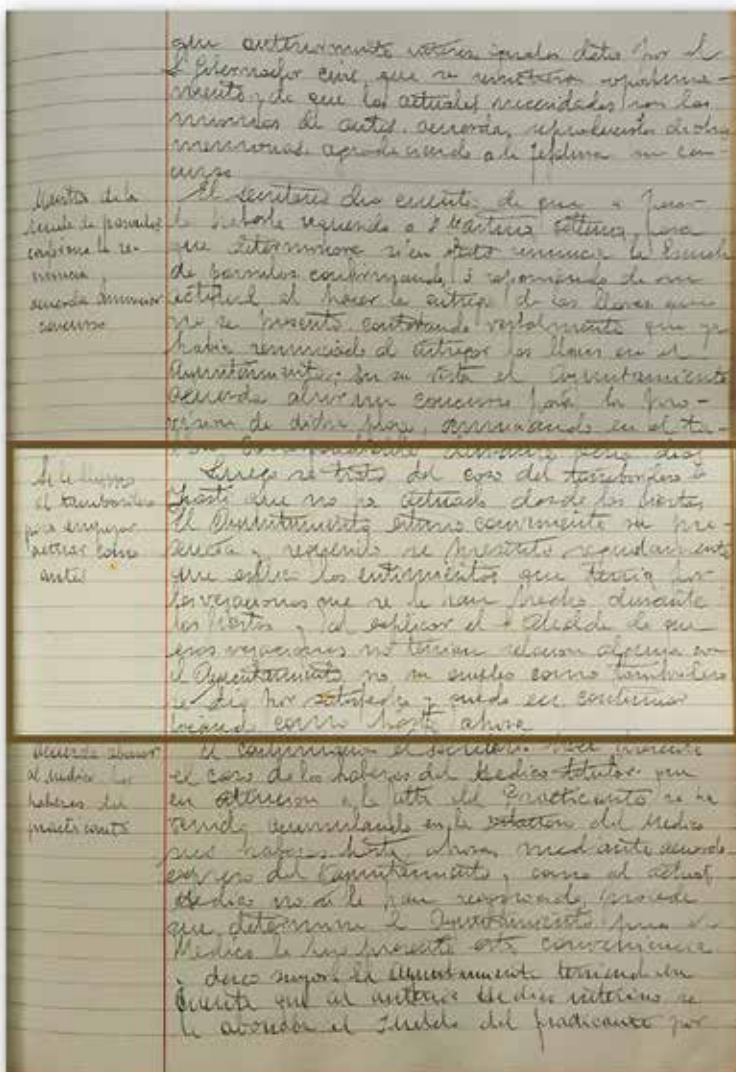 que anteriormente
Gobernador civil, que se remitieron oportuna-
mente, de que las actuales necesidades son las
mismas de antes, acuerda,
memorias, agradeciendo a la Jefatura su con-
curso
Maestra de la
escuela de parvulos
confirma la re-
nuncia
acuerda anunciar
concurso
El secretario dio cuenta de que a
la haberle requerido a
que determinara si en renuncia la Escuela
de parvulos confirmando, o de su
actitud al hacer la entrega de las llaves
no se presentó contestando verbalmente que ya
habia renunciado al entregar las llaves en el
Ayuntamiento. En su vista el Ayuntamiento
acuerda abrir un concurso para la pro-
visión de dicha plaza, anunciando en el ta-
Se le llama
al tamborilero
para empezar
actuar como
antes
Luego se trató del caso del tamborilero
que no ha actuado desde las fiestas
El Ayuntamiento estimó conveniente su pre-
sencia y requerido se presentó seguidamente
que explicó los sentimientos que tenia por
las vejaciones que se le han hecho durante
las fiestas y al explicar el Alcalde de que
esas vejaciones no tenian relacion alguna con
el Ayuntamiento no su empleo como tamborilero
se dio por satisfecho y quedó en continuar
tocando como hasta ahora
acuerda abonar
al medico los
haberes del
practicante
A continuación el secretario hace presente
el caso de los haberes del Medico titular que
en atencion a la falta del Practicante se ha
venido acumulando en la del Medico
sus haberes hasta ahora, mediante acuerdo
expreso del Ayuntamiento, como al actual
Medico no se le han reconocido, procede
que determine el Ayuntamiento pues el
Medico le hizo presente esta conveniencia
y deseo suyo. El Ayuntamiento teniendo en
cuenta que al anterior Medico interino se
le abonaba el sueldo del practicante por